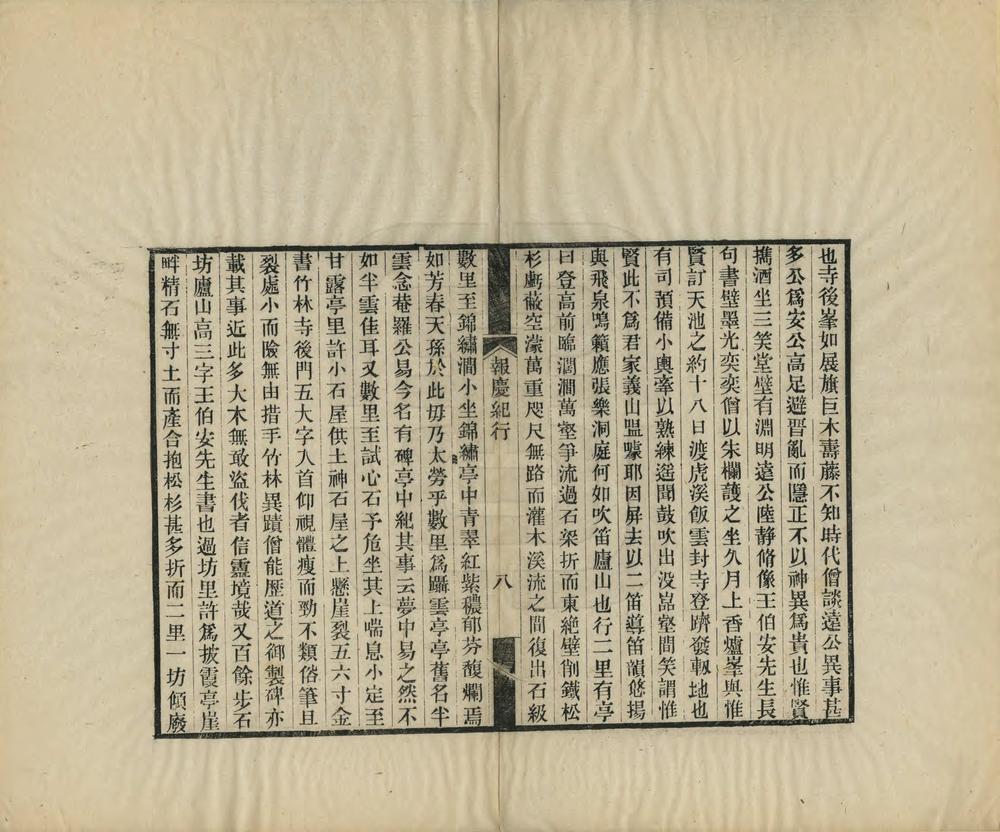 也寺後峯如展旗巨木壽藤不知時代僧談遠公異事甚
多公爲安公高足避晋亂而隱正不以神異爲貴也惟賢
攜酒坐三笑堂壁有淵明遠公陸靜脩像王伯安先生長
句書壁墨光奕奕僧以朱欄護之坐久月上香爐峯與惟
賢訂天池之約十八日渡虎溪飯雲封寺登躋發軔地也
有司預備小輿牽以熟練遥聞鼓吹出没嵓壑間笑謂惟
賢此不爲君家義山盥嚎耶因屏去以二笛導笛韻悠揚
與飛泉鳴籟應張樂洞庭何如吹笛廬山也行二里有亭
曰登高前臨澗澗萬壑爭流過石梁折而東絶壁削鐵松
杉虧蔽空濛萬重咫尺無路而灌木溪流之間復出石級
報慶紀行
八
數里至錦繡澗小坐錦繡亭中青翠紅紫穠郁芬馥爛焉
如芳春天孫於此毋乃太勞乎數里爲躡雲亭亭舊名半
雲念菴羅公易今名有碑亭中紀其事云夢中易之然不
如半雲佳耳又數里至試心石予危坐其上喘息小定至
甘露亭里許小石屋供土神石屋之上懸崖裂五六寸金
書竹林寺後門五大字入首仰視體瘦而勁不類俗筆且
裂處小而險無由措手竹林異蹟僧能歷道之御製碑亦
載其事近此多大木無敢盗伐者信靈境哉又百餘步石
坊廬山高三字王伯安先生書也過坊里許爲披霞亭崖
畔精石無寸土而產合抱松杉甚多折而二里一坊傾廢